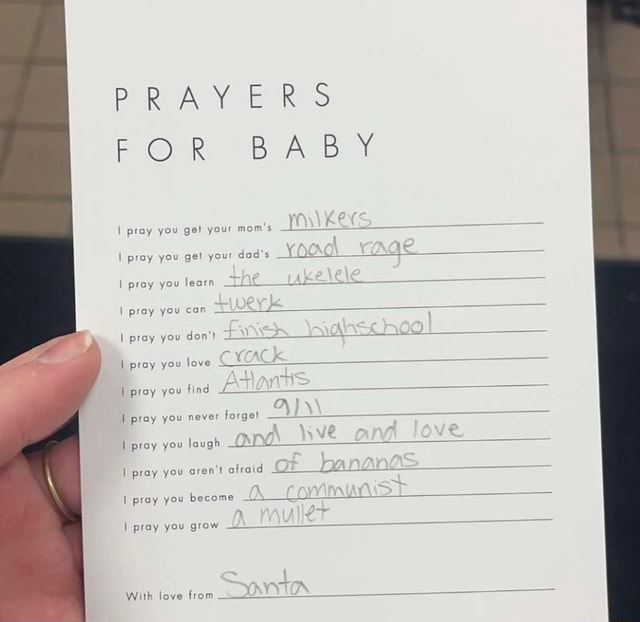 PRAYERS
FOR BABY
I pray you get your mom's milkers
I pray you get your dad's road rage
I pray you learn the ukelele
I pray you can twerk
I pray you don't finish highschool
I pray you love crack
I pray you find Atlantis
I pray you never forget 9/11
I pray you laugh and live and love
I pray you aren't afraid of bananas
I pray you become a communist
I pray you grow a mullet
With love from Santa